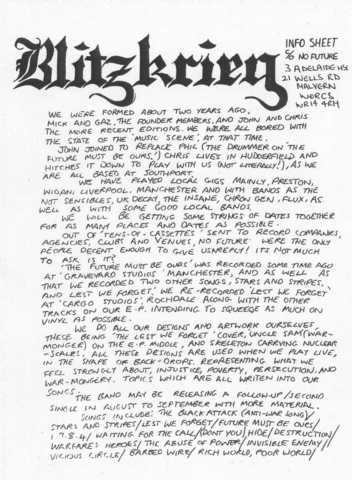 Blitzkrieg
INFO SHEET
C/O NO FUTURE
3 ADELAIDE HSE
21 WELLS RD
MALVERN
WORCS
WR14 4RH
WE WERE FORMED ABOUT TWO YEARS AGO,
MICK AND GAZ, THE FOUNDER MEMBERS, AND JOHN AND CHRIS
THE MORE RECENT EDITIONS. WE WERE ALL BORED WITH
THE STATE OF 'THE MUSIC SCENE', AT THAT TIME.
JOHN JOINED TO REPLACE PHIL (THE DRUMMER ON 'THE
FUTURE MUST BE OURS'.) CHRIS LIVES IN HUDDERFIELD AND
HITCHES IT DOWN TO PLAY WITH US (NOT LITERALLY!), AS WE
ARE ALL BASED AT SOUTHPORT.
WE HAVE PLAYED LOCAL GIGS MAINLY, PRESTON,
WIGAN, LIVERPOOL, MANCHESTER AND WITH BANDS AS THE
NOT SENSIBLES, UK DECAY, THE INSANE, CHRON GEN, FLUX, AS
WELL AS WITH SOME GOOD LOCAL BANDS.
WE WILL BE GETTING SOME STRINGS OF DATES TOGETHER
FOR AS MANY PLACES AND DATES AS POSSIBLE.
OUT OF 'TENS-OF-CASSETTES' SENT TO RECORD COMPANIES,
AGENCIES, CLUBS AND VENUES, NO FUTURE WERE THE ONLY
PEOPLE DECENT ENOUGH TO GIVE US A REPLY! ITS NOT MUCH
TO ASK IS IT?
'THE FUTURE MUST BE OURS' WAS RECORDED SOME TIME AGO
AT 'GRAVEYARD STUDIOS' MANCHESTER, AND AS WELL AS
THAT WE RECORDED TWO OTHER SONGS, STARS AND STRIPES,
AND LEST WE FORGET. WE RE-RECORDED 'LEST WE FORGET'
AT 'CARGO STUDIOS', ROCHDALE ALONG WITH THE OTHER
TRACKS ON OUR E.P. INTENDING TO SQUEEGE AS MUCH ON
VINYL AS POSSIBLE.
WE DO ALL OUR DESIGNS AND ARTWORK OURSELVES,
THESE BEING 'THE LEST WE FORGET' COVER, UNCLE SAM (WAR-
MONGER) ON THE E.P. MIDDLE, AND SKELETON CARRYING NUCLEAR
-SCALES. ALL THESE DESIGNS ARE USED WHEN WE PLAY LIVE,
IN THE SHAPE OF BACK-DROPS. REPRESENTING WHAT WE
FEEL STRONGLY ABOUT, INJUSTICE, POVERTY, PERSECUTION, AND
WAR-MONGERY. TOPICS WHICH ARE ALL WRITEN INTO OUR
SONGS.
THE BAND MAY BE RELEASING A FOLLOW-UP/SECOND
SINGLE IN AUGUST TO SEPTEMBER WITH MORE MATERIAL.
SONGS INCLUDE: THE BLACK ATTACK (ANTI-WAR SONG)/
STARS AND STRIPES/LEST WE FORGET/FUTURE MUST BE OURS/
1.9.8.4/ WAITING FOR THE CALL/DONT YOU/HIDE/DESTRUCTION/
WARFARE: HEROES/ THE ABUSE OF POWER/INVISIBLE ENEMY//
VICIOUS CIRCLE/ BARBED WIRE/ RICH WORLD, POOR WORLD/